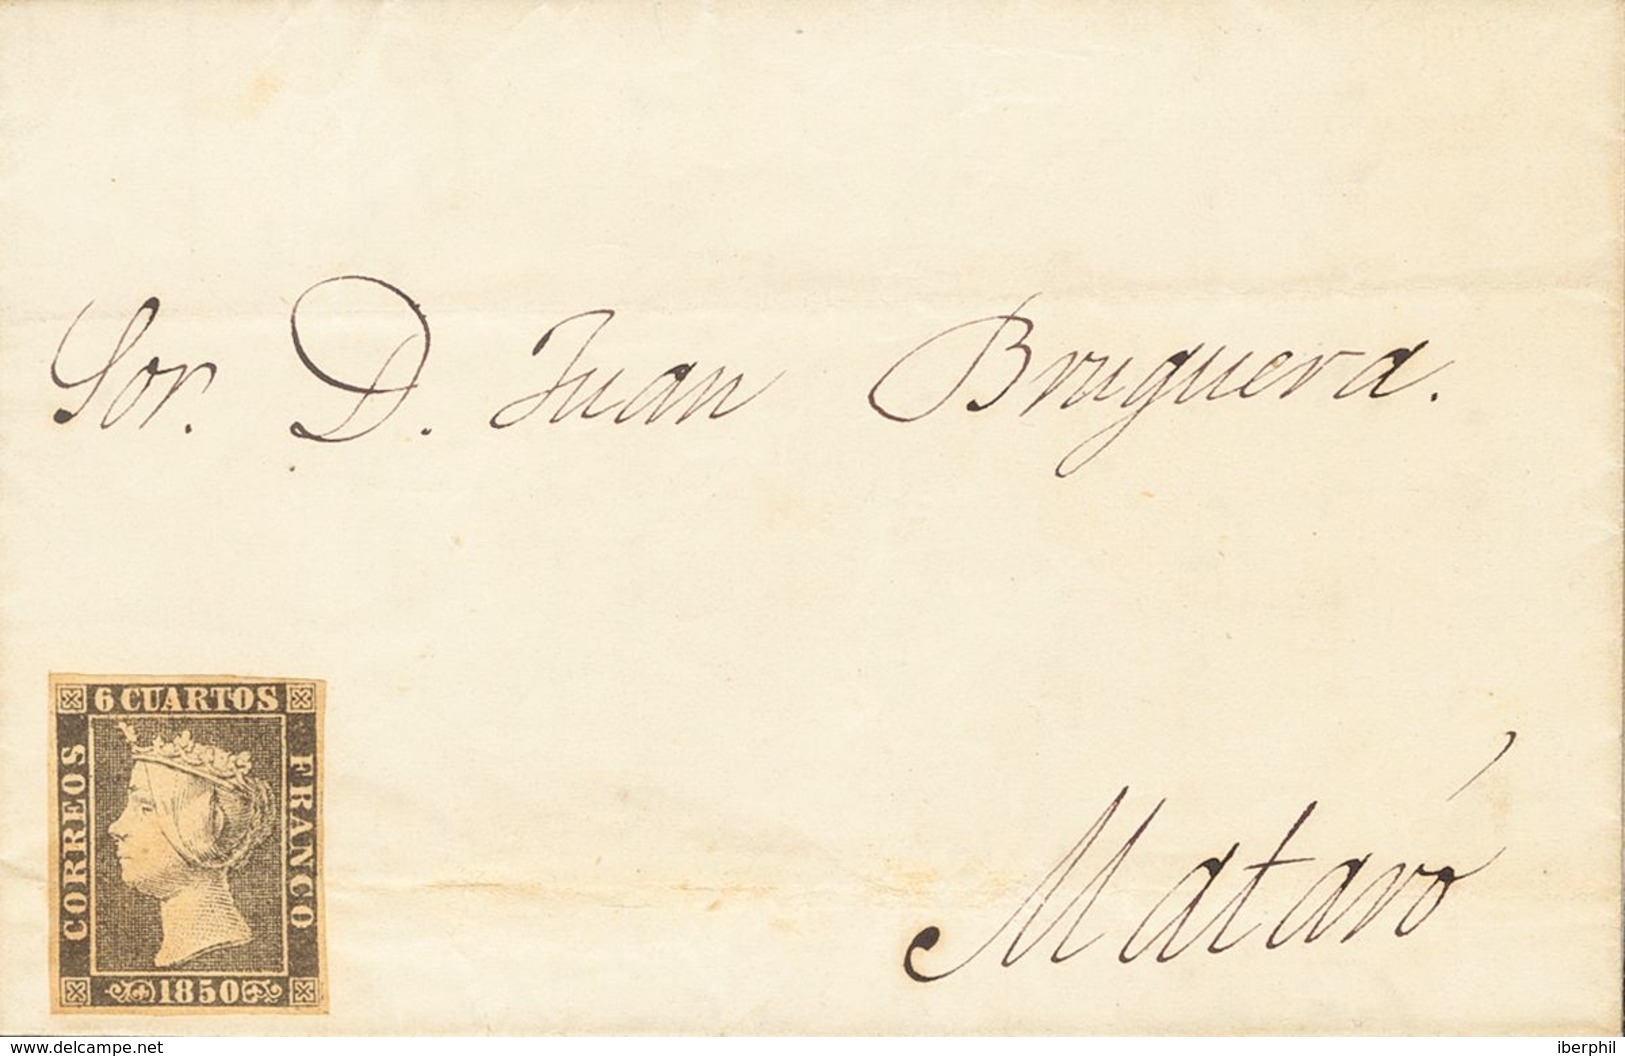 Sor. D. Juan Bruguera.
6 CUARTOS
CORREOS
FRANCO
1850
Mataró
www.delcampe.net
iberphil